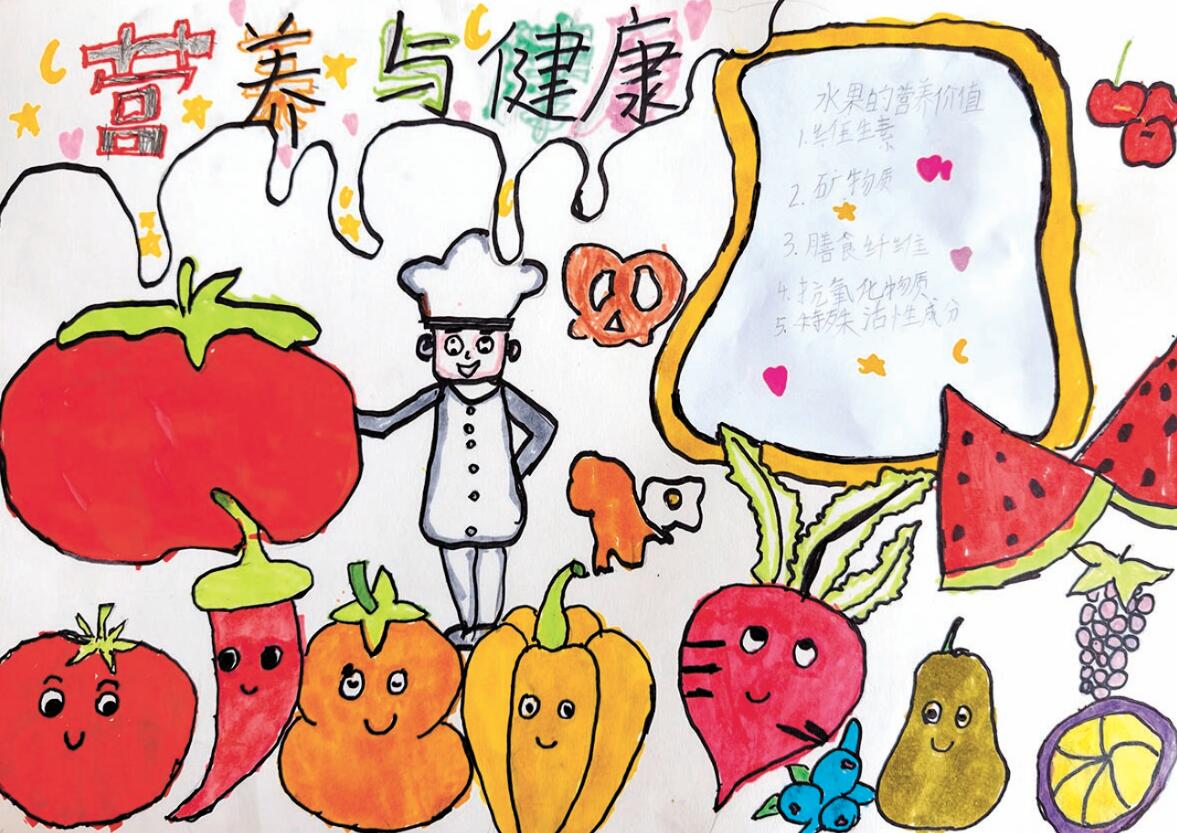 营养与健康
水果的营养价值
1.维生素
2.矿物质
3.膳食纤维
4.抗氧化物质
5.特殊活性成分